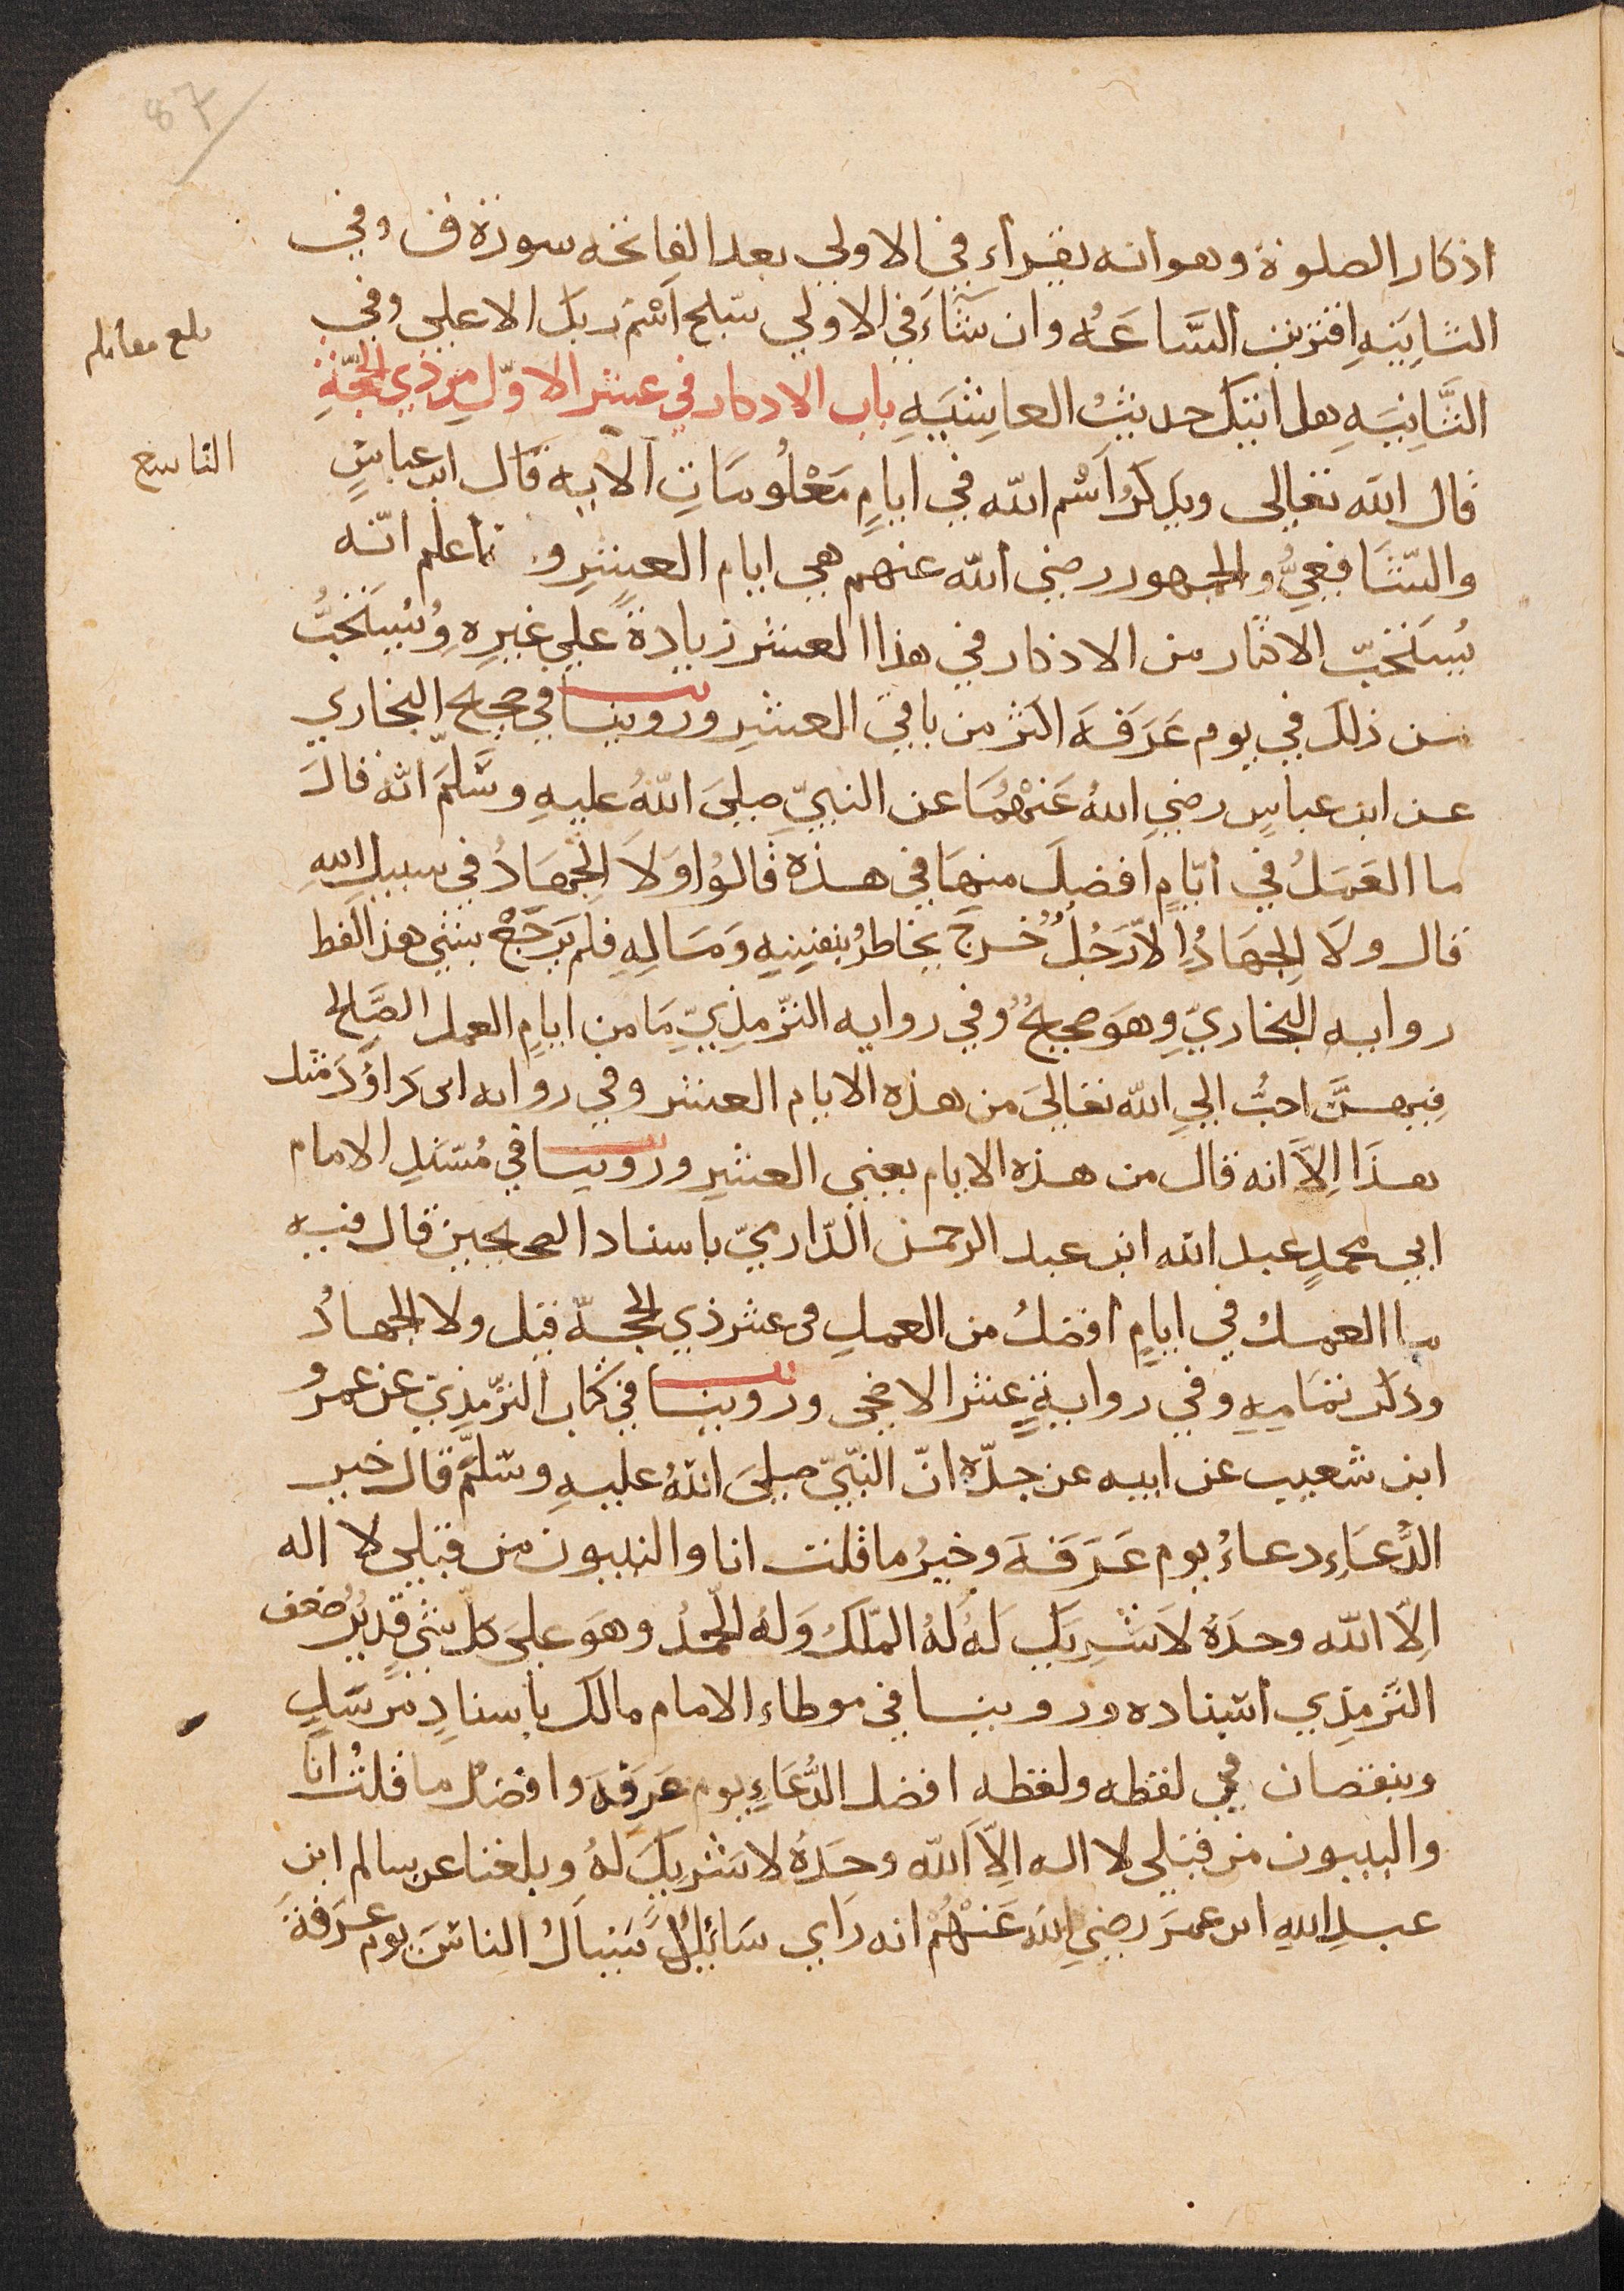 87
اذكار الصلوة وهو انه يقراء في الاولي بعد الفاتحه سورة ق وفي
الثانِيَهِ اقتربت السَّاعَهُ وان شَآءَ في الاولي سبّح اسْم ربك الاعلي وفي
بلغ مقابلة
الثَّانِيَهِ هل اتيك حديثُ الغاشِيَهِ باب الاذكار في عشر الاوّلِ من ذي الحِجّةِ
قال الله تعالى ويذكرُ اسْم الله في ايامٍ مَعْلُومَاتٍ الايه قال ابن عباسٍ
التاسع
والشّافِعيُّ والجمهور رضي الله عنهم هي ايام العشرِ و اعلم انّه
يُستَحبّ الاكثار من الاذكار في هذا العشر زيادةً علي غيرِهِ ويُستَحَبُّ
من ذلك في يوم عَرَفَه اكثر من باقي العشرِ وروينا في صحيح البخاري
عن ابن عباسٍ رضي اللهُ عَنْهُمَا عن النبيّ صلىَ اللهُ عليهِ وسَلّمَ انّه قالَ
ما العَمَلُ في ايّامٍ افضلَ منهَا في هذه قالوُا ولَا الجِهَادُ في سبيل اللهِ
قال ولَا الجِهَادُ اِلّا رَجُلٌ خَرجَ يخاطرُ بنفسِهِ وَمَالِهِ فلم يَرجَعْ بشيٍ هذا لفظ
روايه البخاريّ وهوَ صحيحٌ وفي روايه الترمذِيّ مَا من ايامٍ العمل الصَّالح
فِيهنَّ احبُّ الي الله تعالىَ من هذه الايام العشر وفي روايه ابى دَاوُدَ مثل
هذَا اِلّا انه قال من هذه الايام يعني العشرِ وروينا في مُسْنَدِ الامام
ابي محمدٍ عبد الله ابن عبد الرحمن الدّارميّ باسناد الصحيحين قال فيه
ما العملُ في ايامٍ افضلُ من العملِ فى عشر ذي الحجّة قيل ولا الجهادُ
وذكر تمَامهِ وفي روايةٍ عشر الاضحى وروينا في كتاب الترّمذِيّ عن عمرو
ابن شعيب عن ابيه عن جدّه انّ النّبيّ صلىَ اللهُ عليهِ وسَلّمَ قال خير
الدُّعَاءِ دعاءُ يوم عَرَفَهَ وخيرُ ما قلت انا والنبيون من قبلي لا اله
اِلّا الله وحدَهُ لاَ شريكَ لَهُ لَهُ المُلكُ وَلهُ الحَمدُ وهوَ علىَ كلّ شيٍ قديرٌ ضعف
الترمذِي اسْناده وروينا في موطاء الامام مالك باسنادٍ مُرسَلٍ
وبنقصان في لفظه ولفظه افضل الدُّعَاءِ يوم عَرَفَهَ وافضلُ ما قلتُ انا
والنبيون من قبلي لا اله اِلّا الله وحدَهُ لا شريكَ لَهُ وبلغنا عن سالم ابنِ
عبدِ اللهِ ابن عمَرَ رضي الله عَنْهُمْ انه رَاي سَائِلًا يَسْاَلُ الناسَ يومَ عَرَفَةَ